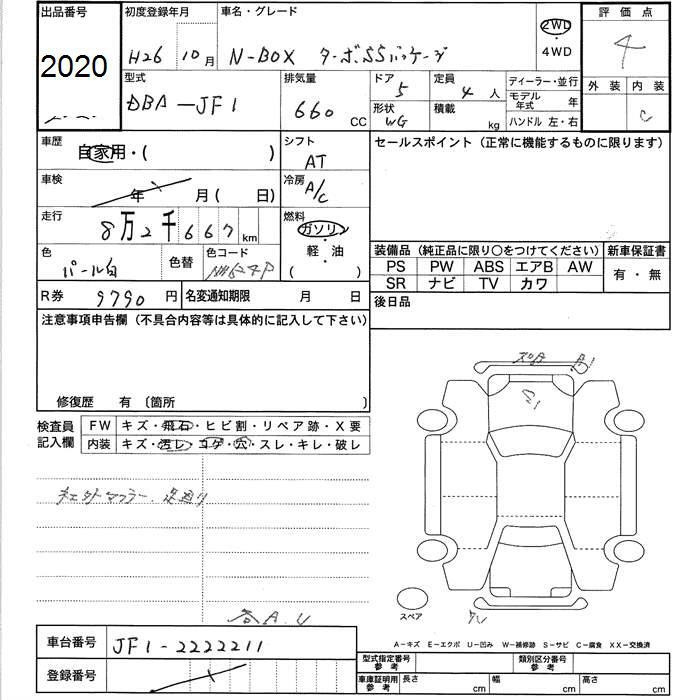 出品番号 初度登録年月 車名・グレード 2WD・4WD 評価点
2020 H26 10月 N-BOX ターボSSパッケージ 4
型式 排気量 ドア 定員 ディーラー・並行 外装 内装
DBA-JF1 660 CC 5 4 人 モデル年式 年 C
形状 積載 ハンドル 左・右
WG kg
車歴 自家用・( ) シフト セールスポイント (正常に機能するものに限ります)
AT
車検 年 月 ( 日) 冷房
A/C
走行 8万2千667km 燃料
ガソリン・軽・油
( )
色 色替 色コード 装備品 (純正品に限り○をつけてください) 新車保証書
パール白 NH624P PS PW ABS エアB AW 有・無
SR ナビ TV カワ
R券 9790 円 名変通知期限 月 日 後日品
注意事項申告欄 (不具合内容等は具体的に記入して下さい)
修復歴 有 〔箇所 〕
検査員記入欄 FW キズ・飛石・ヒビ割・リペア跡・X要
内装 キズ・汚レ・コゲ・穴・スレ・キレ・破レ
スペア
車台番号 JF1-2222211
A-キズ E-エクボ U-凹み W-補修跡 S-サビ C-腐食 XX-交換済
登録番号 型式指定番号参考 類別区分番号参考
車庫証明用参考 長さ cm 幅 cm 高さ cm